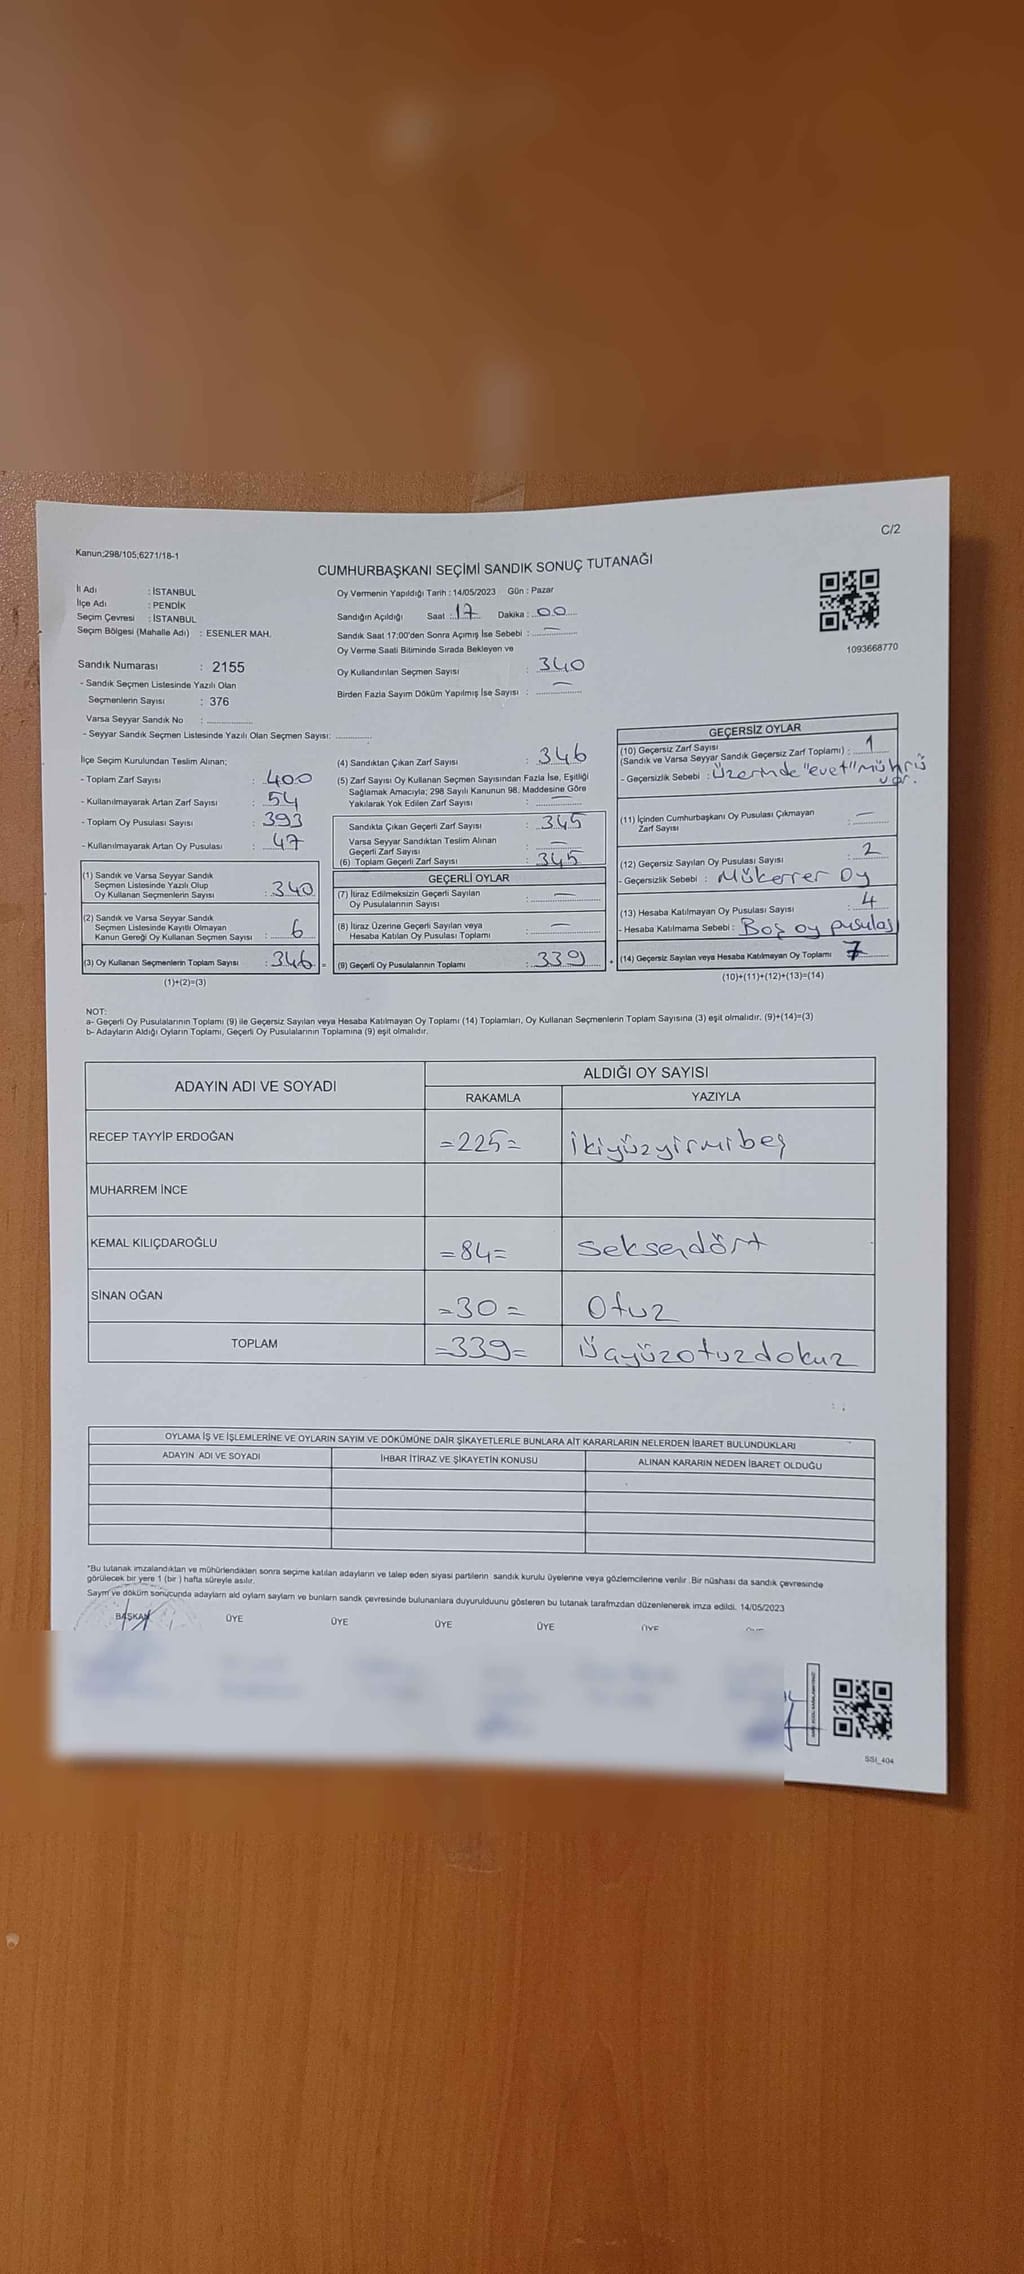 C/2
Kanun;298/105;6271/18-1
CUMHURBAŞKANI SEÇİMİ SANDIK SONUÇ TUTANAĞI
İl Adı : İSTANBUL
İlçe Adı : PENDİK
Seçim Çevresi : İSTANBUL
Seçim Bölgesi (Mahalle Adı) : ESENLER MAH.
Oy Vermenin Yapıldığı Tarih : 14/05/2023 Gün : Pazar
Sandığın Açıldığı Saat : 17 Dakika : 00
Sandık Saat 17:00'den Sonra Açımış İse Sebebi : —
Oy Verme Saati Bitiminde Sırada Bekleyen ve
Oy Kullandırılan Seçmen Sayısı : 340
Birden Fazla Sayım Döküm Yapılmış İse Sayısı : —
1093668770
Sandık Numarası : 2155
- Sandık Seçmen Listesinde Yazılı Olan
Seçmenlerin Sayısı : 376
Varsa Seyyar Sandık No :
- Seyyar Sandık Seçmen Listesinde Yazılı Olan Seçmen Sayısı:
İlçe Seçim Kurulundan Teslim Alınan;
- Toplam Zarf Sayısı : 400
- Kullanılmayarak Artan Zarf Sayısı : 54
- Toplam Oy Pusulası Sayısı : 393
- Kullanılmayarak Artan Oy Pusulası : 47
(1) Sandık ve Varsa Seyyar Sandık
Seçmen Listesinde Yazılı Olup
Oy Kullanan Seçmenlerin Sayısı : 340
(2) Sandık ve Varsa Seyyar Sandık
Seçmen Listesinde Kayıtlı Olmayan
Kanun Gereği Oy Kullanan Seçmen Sayısı : 6
(3) Oy Kullanan Seçmenlerin Toplam Sayısı : 346 =
(1)+(2)=(3)
(4) Sandıktan Çıkan Zarf Sayısı : 346
(5) Zarf Sayısı Oy Kullanan Seçmen Sayısından Fazla İse, Eşitliği
Sağlamak Amacıyla; 298 Sayılı Kanunun 98. Maddesine Göre
Yakılarak Yok Edilen Zarf Sayısı : —
Sandıkta Çıkan Geçerli Zarf Sayısı : 345
Varsa Seyyar Sandıktan Teslim Alınan
Geçerli Zarf Sayısı : —
(6) Toplam Geçerli Zarf Sayısı : 345
GEÇERLİ OYLAR
(7) İtiraz Edilmeksizin Geçerli Sayılan
Oy Pusulalarının Sayısı : —
(8) İtiraz Üzerine Geçerli Sayılan veya
Hesaba Katılan Oy Pusulası Toplamı : —
(9) Geçerli Oy Pusulalarının Toplamı : 339 +
GEÇERSİZ OYLAR
(10) Geçersiz Zarf Sayısı
(Sandık ve Varsa Seyyar Sandık Geçersiz Zarf Toplamı) : 1
- Geçersizlik Sebebi : Üzerinde "evet" mührü
var.
(11) İçinden Cumhurbaşkanı Oy Pusulası Çıkmayan
Zarf Sayısı : —
(12) Geçersiz Sayılan Oy Pusulası Sayısı : 2
- Geçersizlik Sebebi : Mükerrer Oy
(13) Hesaba Katılmayan Oy Pusulası Sayısı : 4
- Hesaba Katılmama Sebebi : Boş oy pusulası
(14) Geçersiz Sayılan veya Hesaba Katılmayan Oy Toplamı 7
(10)+(11)+(12)+(13)=(14)
NOT:
a- Geçerli Oy Pusulalarının Toplamı (9) ile Geçersiz Sayılan veya Hesaba Katılmayan Oy Toplamı (14) Toplamları, Oy Kullanan Seçmenlerin Toplam Sayısına (3) eşit olmalıdır. (9)+(14)=(3)
b- Adayların Aldığı Oyların Toplamı, Geçerli Oy Pusulalarının Toplamına (9) eşit olmalıdır.
ADAYIN ADI VE SOYADI ALDIĞI OY SAYISI
RAKAMLA YAZIYLA
RECEP TAYYİP ERDOĞAN =225= İkiyüzyirmibeş
MUHARREM İNCE
KEMAL KILIÇDAROĞLU =84= Seksendört
SİNAN OĞAN =30= Otuz
TOPLAM =339= Üçyüzotuzdokuz
OYLAMA İŞ VE İŞLEMLERİNE VE OYLARIN SAYIM VE DÖKÜMÜNE DAİR ŞİKAYETLERLE BUNLARA AİT KARARLARIN NELERDEN İBARET BULUNDUKLARI
ADAYIN ADI VE SOYADI İHBAR İTİRAZ VE ŞİKAYETİN KONUSU ALINAN KARARIN NEDEN İBARET OLDUĞU
"Bu tutanak imzalandıktan ve mühürlendikten sonra seçime katılan adayların ve talep eden siyasi partilerin sandık kurulu üyelerine veya gözlemcilerine verilir. Bir nüshası da sandık çevresinde
görülecek bir yere 1 (bir ) hafta süreyle asılır.
Sayım ve döküm sonucunda adayların ald oyların sayların ve bunların sandk çevresinde bulunanlara duyurulduunu gösteren bu tutanak tarafmzdan düzenlenerek imza edildi. 14/05/2023
BAŞKAN ÜYE ÜYE ÜYE ÜYE ÜYE
SSI_404